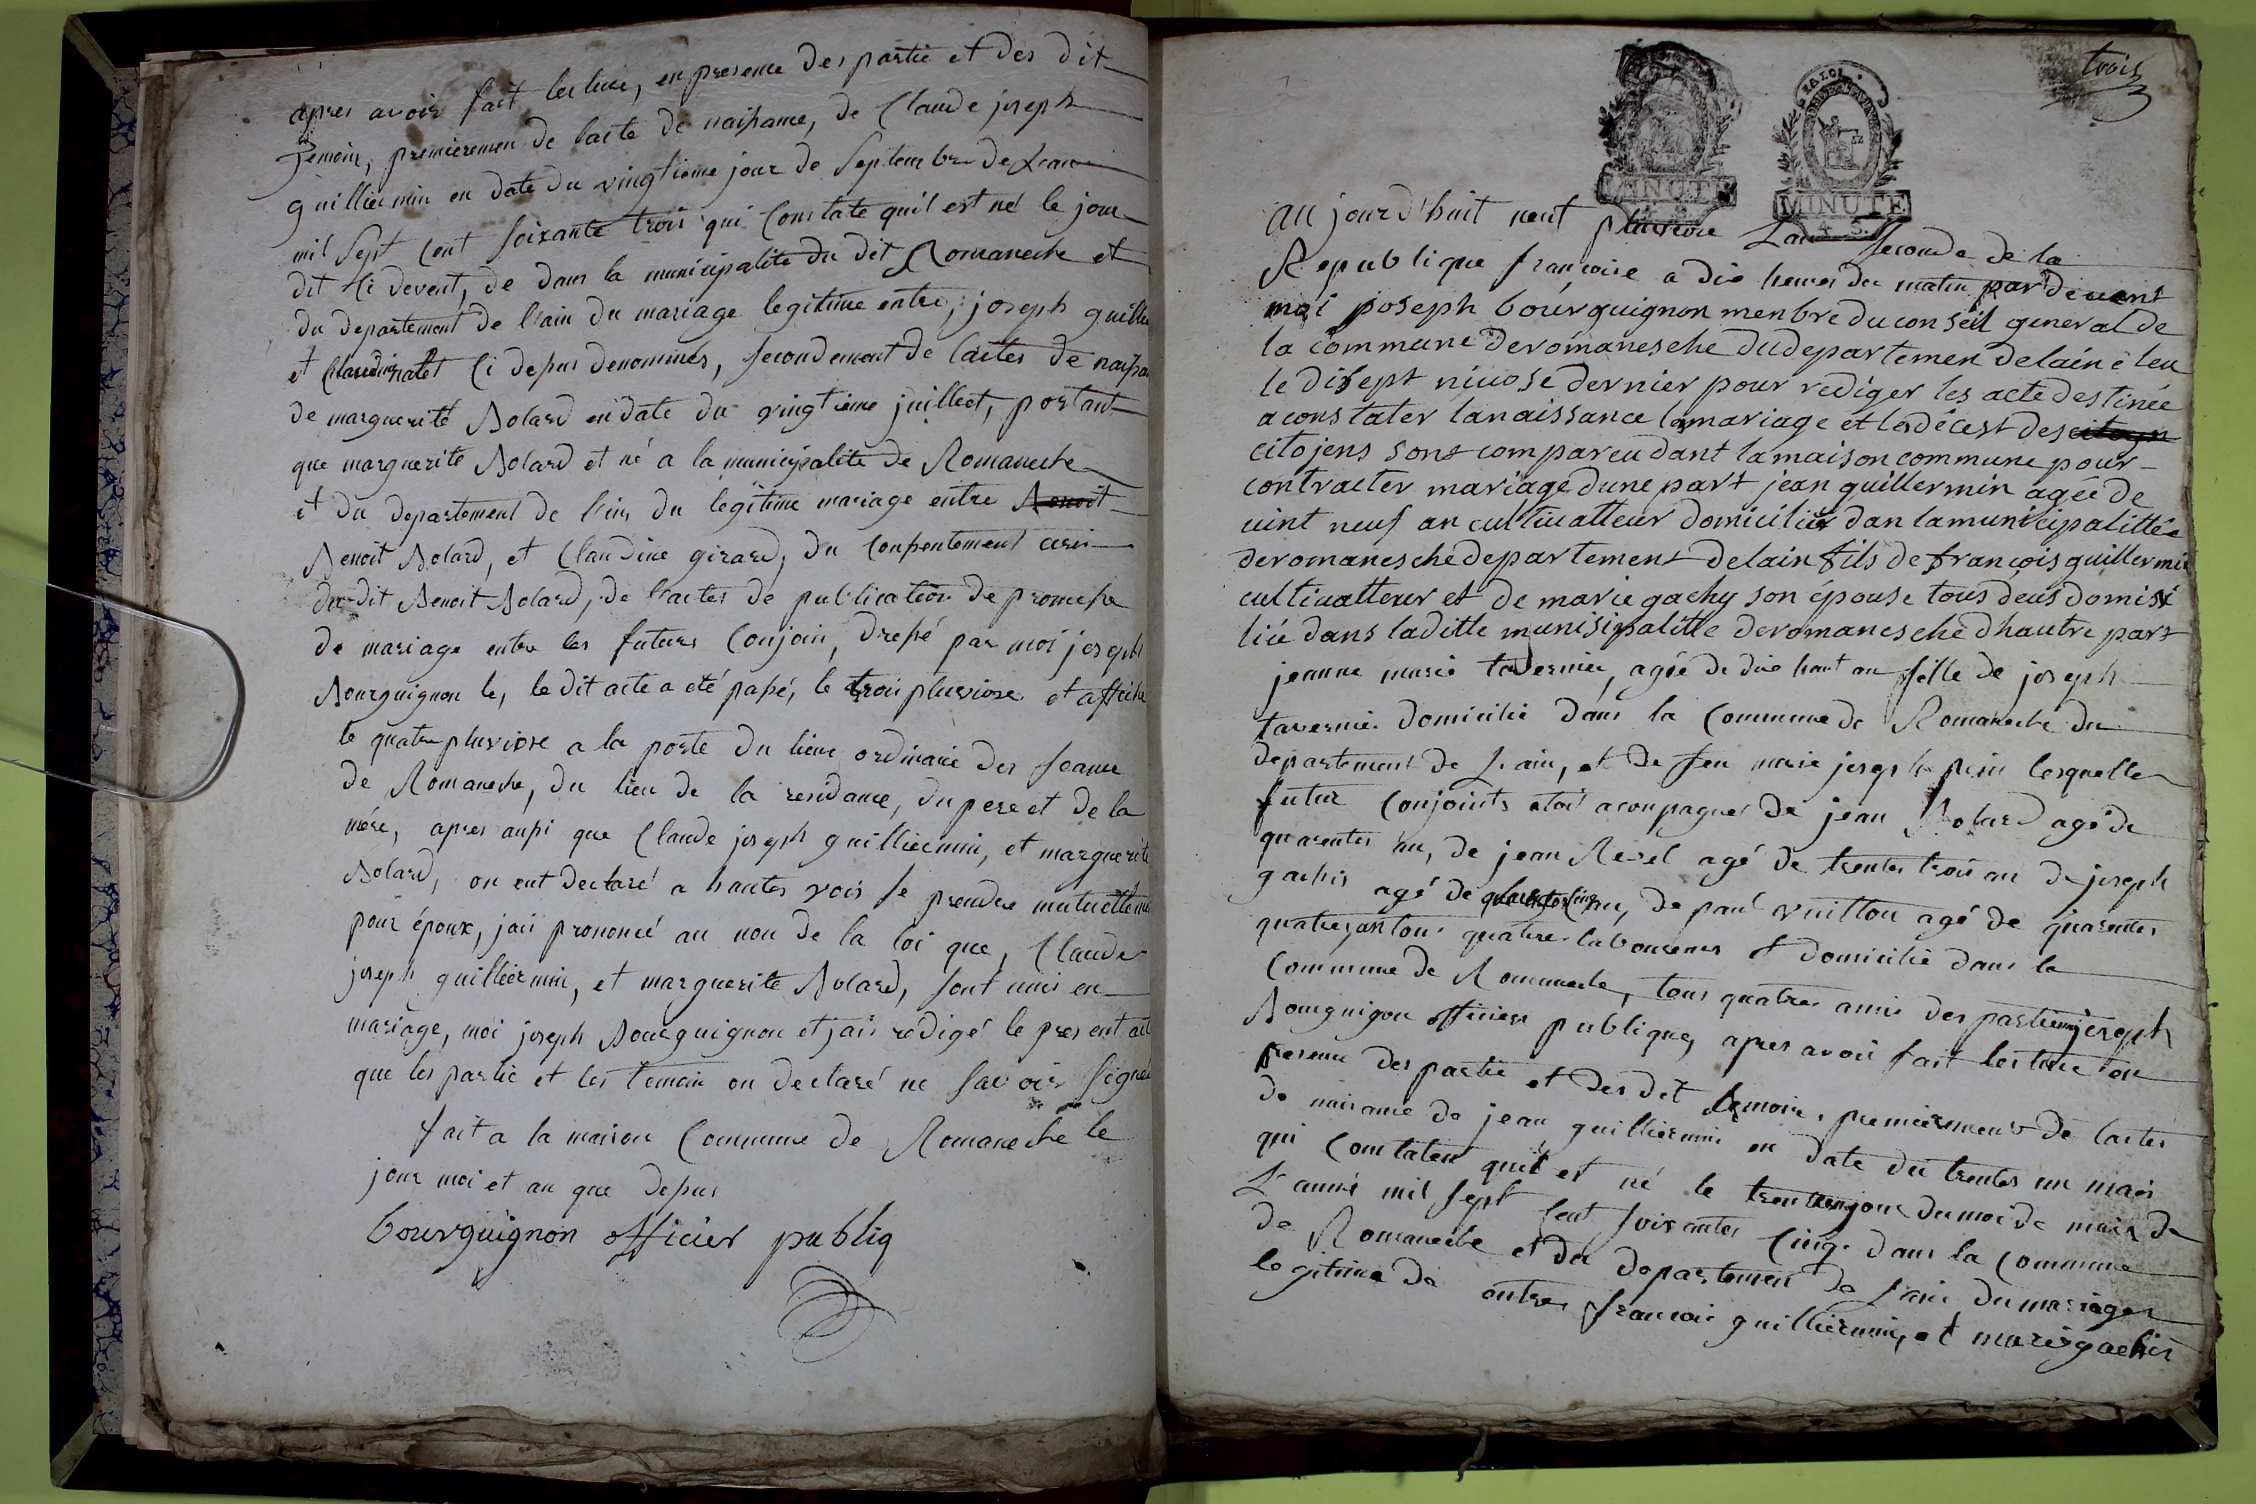 apres avoir fait lecture, en presence des partie et des dit
Temoin, premieremen de lacte de naissance, de Claude joseph
guilliermin en date du vingtieme jour de Septembre de Lan
mil Sept Cent soixante trois qui Constate quil est né le jour
dit Ci devent, de dans la municipalite du dit Romaneche et
du departement de l'ain du mariage legitime entre, joseph guillie
et Claudine Ci depus denommés, secondement de lactes de naissa
de marguerite Bolard en date du vingtieme juillect, portant
que marguerite Bolard et né a la municipalite de Romaneche
et du departement de l'ain du legitime mariage entre Benoit
Benoit Bolard, et Claudine girard, du Consentement aussi
du dit Benoit Bolard, de l'actes de publication de promesse
de mariage entre les futurs Conjoin, dressé par moi joseph
Bourguignon le, le dit acte a été passé, le trois pluviose et affiche
le quatre pluviose a la porte du lieux ordinaire des seance
de Romaneche, du lieu de la residance, du pere et de la
mére, apres aussi que Claude joseph guilliermin, et marguerite
Bolard, on eut declaré a hautes vois se prendre mutuelleme
pour époux, jaii prononcé au non de la loi que, Claude
joseph guilliermin, et marguerite Bolard, sont unis en
mariage, moi joseph Bourguignon et jais rédigé le present act
que les partie et les temoin on declaré ne savoir signé
fait a la maison Commune de Romaneche le
jour moi et an que depus
bourguignon officier publiq
trois
LA LOI
MINUTE
MINUTE
4. S.
aujourd'huit neuf pluviose Lan seconde de la
Republique françoise a dix heures du matin par devant
moi joseph bourguignon menbre du conseil general de
la commune de romanesche du departemen de lain éleu
le disept nivose dernier pour rediger les acte destinée
a constater la naissance le mariage et les décest des citoyn
citojens sont compareu dant la maison commune pour
contracter mariage dune part jean guillermin agée de
vint neuf an cultivatteur domicilier dan la municipalittée
de romanesche departement de lain fils de françois guillermin
cultivatteur et de marie gachy son épouse tous deus domisi
liée dans laditte munisipalitte de romanesche dhautre part
jeanne marie tavernier, agée de dix huit an fille de joseph
tavernier domicilié dans la Commune de Romaneche du
departement de L'ain, et de feu marie joseph lesquelle
futur Conjoints etoi acompagné de jean Bolard agé de
quarentes an, de jean Revel agé de trentes trois an de joseph
gachis agé de quarante cinq an, de paul vuitton agé de quarentes
quatres, an tous quatres laboureurs et domicilié dans la
Commune de Romaneche, tous quatres amis des partie moi joseph
Bourguigon officier publique, apres avoir fait lecture en
presence des partie et des dit temoin, premierement de lactes
de naisance de jean guilliermin en date du trentes un mais
qui Constatent quil et né le trente un jour du moi de mais de
L'année mil sept Cent soixantes Cinq dans la Commune
de Romaneche et du departement de L'ain, du mariages
legitime de entres francois guilliermin, et marie gachis